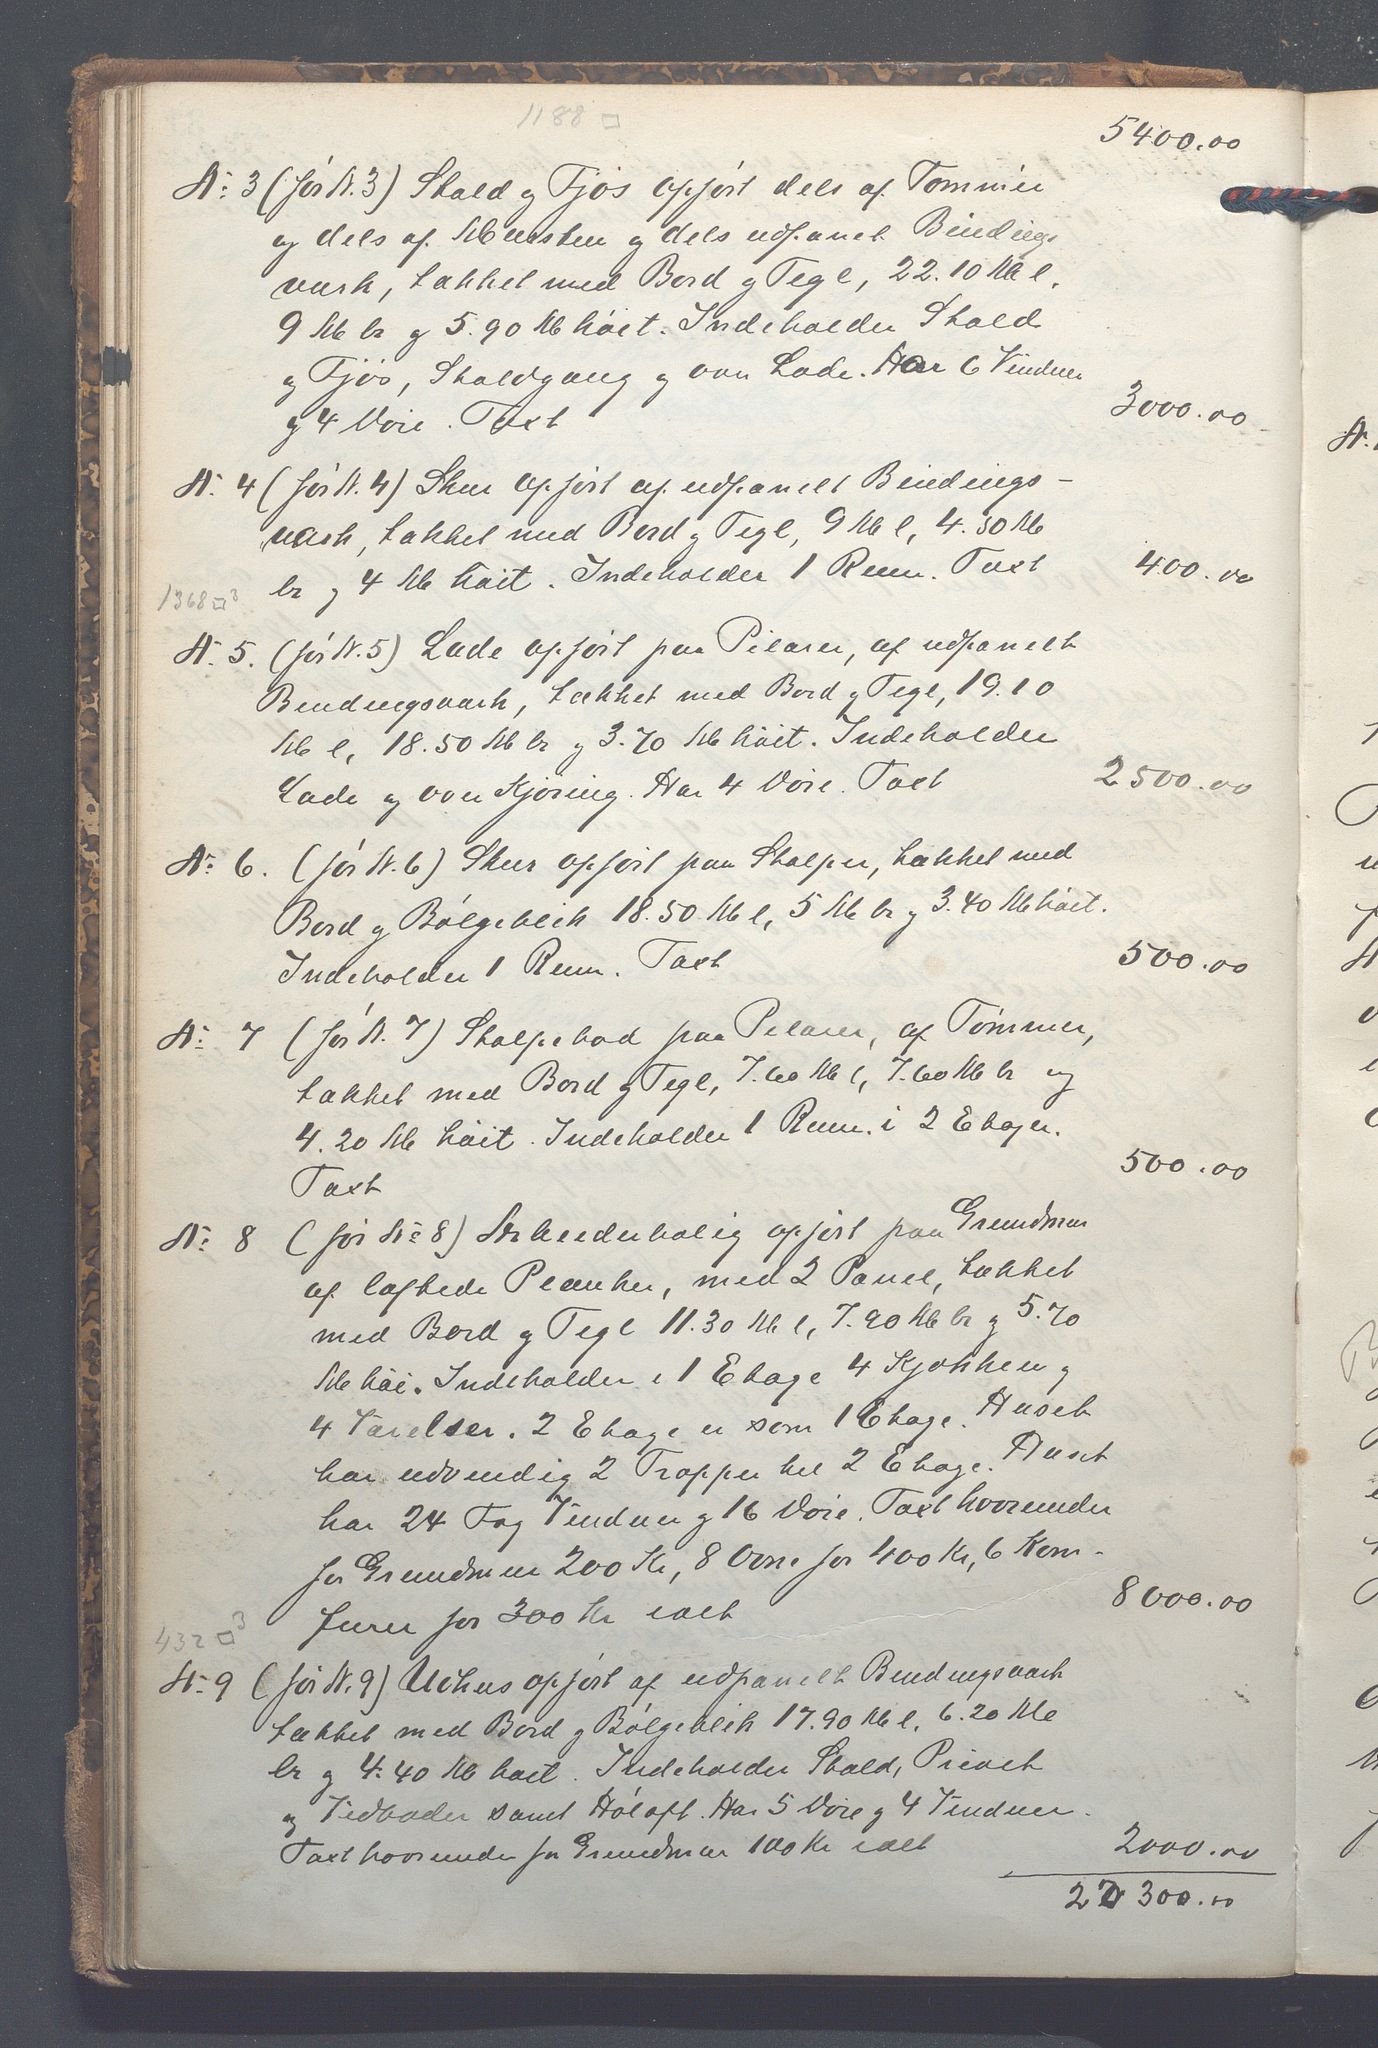 1188 □
5400.00
N: 3 (før N. 3) Stald og Fjøs opført dels af Tømmer
og dels af Mursten og dels udpanelt Bindings
værk, tækket med Bord og Tegl, 22.10 M l,
9 M br og 5.90 M høit. Indeholder Stald
og Fjøs, Staldgang og ovn Lade. Har 6 Vinduer
og 4 Døre. Taxt 3000.00
N. 4 (før N. 4) Skur opført af udpanelt Bindings-
værk, tækket med Bord og Tegl, 9 M l, 4.50 M
br og 4 M høit. Indeholder 1 Rum. Taxt 400.00
1368 □3
N. 5. (før N. 5) Lade opført paa Pilarer, af udpanelt
Bindingsværk, tækket med Bord og Tegl, 19.10
M l, 18.50 M br og 3.70 M høit. Indeholder
Lade og ovn Kjøring. Har 4 Døre. Taxt 2500.00
N: 6. (før N. 6) Skur opført paa Stolper, tækket med
Bord og Bølgeblik 18.50 M l, 5 M br og 3.40 M høit.
Indeholder 1 Rum. Taxt 500.00
N: 7 (før N. 7) Stolpebod paa Pilarer, af Tømmer,
tækket med Bord og Tegl, 7.60 M l, 7.60 M br og
4.20 M høit. Indeholder 1 Rum i 2 Etager.
Taxt 500.00
N: 8 (før N: 8) Arbeiderbolig opført paa Grundmur
af laftede Planker, med 2 Panel, tækket
med Bord og Tegl 11.30 M l, 7.90 M br og 5.70
M høi. Indeholder i 1 Etage 4 Kjøkken og
4 Værelser. 2 Etage er som 1 Etage. Huset
har udvendig 2 Trapper til 2 Etage. Huset
har 24 Fag Vinduer og 16 Døre. Taxt hvorunder
for Grundmur 200 Kr, 8 Ovne for 400 Kr, 6 Kom-
furer for 300 Kr ialt 8000.00
432 □3
N: 9 (før N. 9) Uthus opført af udpanelt Bindingsværk
tækket med Bord og Bølgeblik 17.90 M l, 6.20 M
br og 4.40 M høit. Indeholder Stald, Privet
og Vedboder samt Høloft. Har 5 Døre og 4 Vinduer.
Taxt hvorunder for Grundmur 100 Kr ialt 2000.00
22 300.00